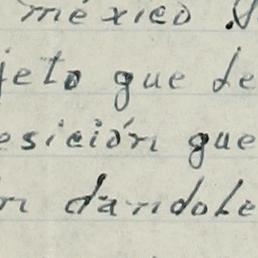 méxico
jeto que le
esición que
n dandole